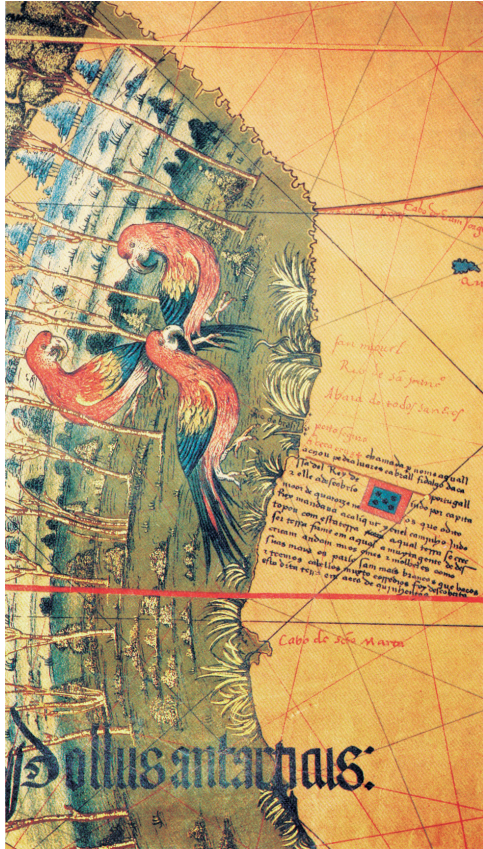 Cabo de Sam Jorge
san miguel
Rio de sã franc.º
Abaia de todos sanctos
porto seguro
A vera cruz + chamada p. nome aquall
achou pedraluares cabrall fidalgo da ca
ssa del Rey de portugall
& elle a descobrio indo por capita
moor de quatorze naos que o dito
Rey mandaua a caliqut & enel caminho indo
topou com esta terra aqual terra se cree
ser terra firme em aqual a muyta gente de
andam nuos omes & molheres como
suas mais os pario sam mais brancos que bacos
& teem os cabellos muyto corredios foy descoberta
esta dita terra em aera de quinhentos
Cabo de Sãta Marta
Pollus antarticus: